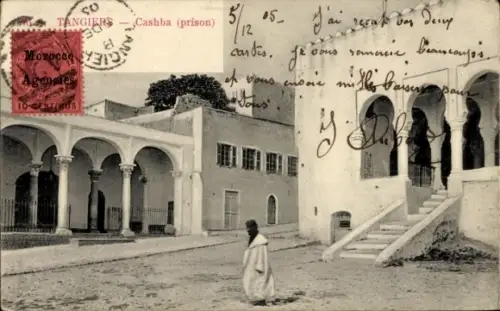 TANGIERS — Cashba (prison)
TANGIER
DE
03
Morocco
Agencies
10 CENTIMOS
5/12 05-
j'ai reçu vos deux
cartes. je vous
remercie beaucoup
et vous envoie mille baisers pour
vous